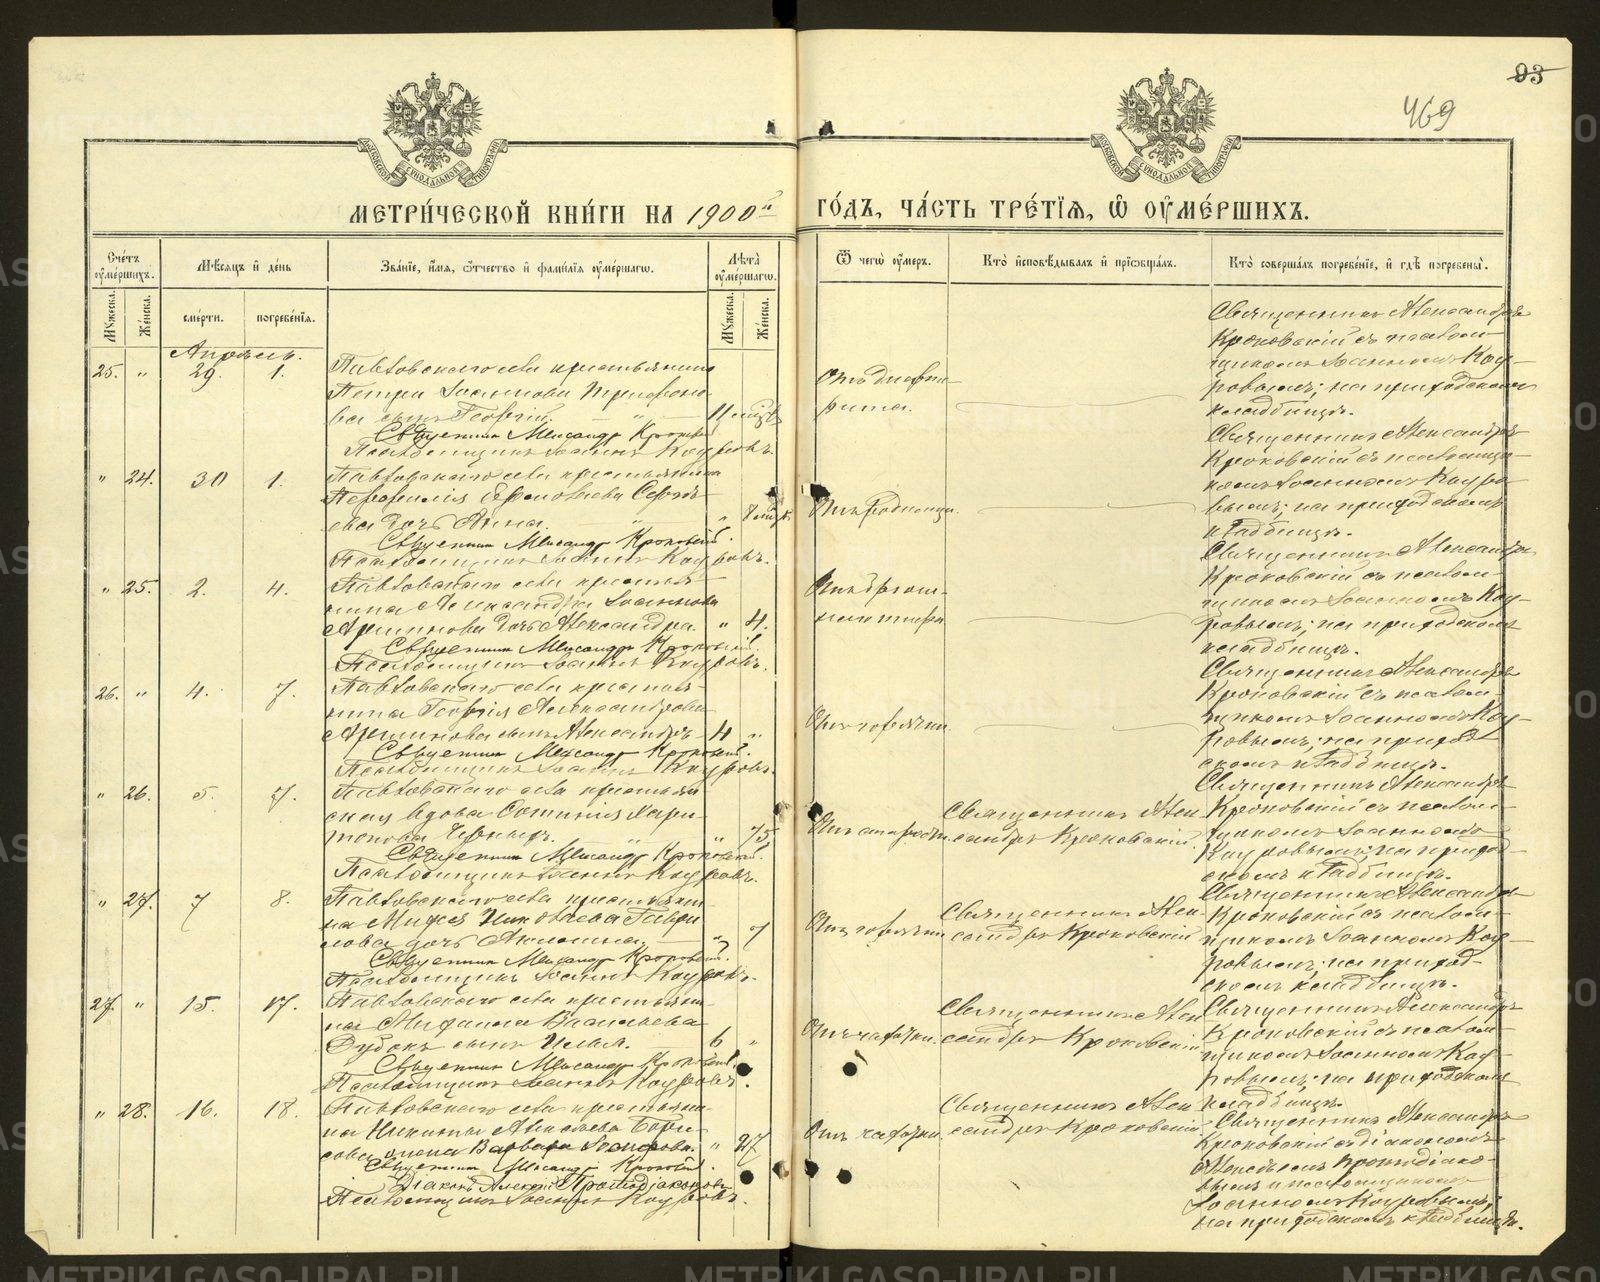 93
469
МЕТРИ́ЧЕСКОЙ КНИ́ГИ НА 1900й ГО́ДЪ, ЧА́СТЬ ТРЕ́ТІѦ, Ѡ ОУМЕ́РШИХЪ.
Сче́тъ оумершихъ.
Мѣсяцъ и де́нь
Зва́ніе, и́мя, о́тчество и фами́лія оумершагѡ.
Лѣта оумершагѡ.
Ѿ чегѡ̀ оумеръ.
Кто̀ исповѣ́дывалъ и пріѡбща́лъ.
Кто̀ соверша́лъ погребе́ніе, и гдѣ̀ погребены̀.
Мꙋжеска.
Же́нска.
сме́рти.
погребе́нія.
Мꙋжеска.
Же́нска.
Апрѣль.
25. " 29. 1.
Павловскаго села крестьянина
Петра Іоаннова
сынъ Георгій. 11 мцъ
Священникъ Александръ Кроковскій
Псаломщикъ Іоаннъ Кауровъ.
Отъ дифте-
рита.
Священникъ Александръ
Кроковскій съ псалом-
щикомъ Іоанномъ Кау-
ровымъ; на приходскомъ
кладбищѣ.
" 24. 30 1.
Павловскаго села крестьянина
дочь Анна. "
Священникъ Александръ Кроковскій.
Псаломщикъ Іоаннъ Кауровъ.
Отъ родимца.
Священникъ Александръ
Кроковскій съ псаломщи-
комъ Іоанномъ Кауро-
вымъ; на приходскомъ
кладбищѣ.
" 25. 2. 4.
Павловскаго села крестья-
нина Александра Іоаннова
Аршинова дочь Александра. " 4.
Священникъ Александръ Кроковскій.
Псаломщикъ Іоаннъ Кауровъ.
Священникъ Александръ
Кроковскій съ псалом-
щикомъ Іоанномъ Кау-
ровымъ; на приходскомъ
кладбищѣ.
26. " 4. 7.
Павловскаго села крестья-
нина Георгія Александрова
Аршинова сынъ Александръ 4 "
Священникъ Александръ Кроковскій.
Псаломщикъ Іоаннъ Кауровъ.
Отъ горячки.
Священникъ Александръ
Кроковскій съ псалом-
щикомъ Іоанномъ Кау-
ровымъ; на приход-
скомъ кладбищѣ.
" 26. 5. 7.
Павловскаго села крестьян-
ская вдова Хари-
тонова Черныхъ. " 75
Священникъ Александръ Кроковскій.
Псаломщикъ Іоаннъ Кауровъ.
Отъ старости.
Священникъ Алек-
сандръ Кроковскій.
Священникъ Александръ
Кроковскій съ псалом-
щикомъ Іоанномъ
Кауровымъ; на приход-
скомъ кладбищѣ.
" 27. 7 8.
Павловскаго села крестьяни-
на Николаева Гаври-
лова дочь Акилина. " 7
Священникъ Александръ Кроковскій.
Псаломщикъ Іоаннъ Кауровъ.
Отъ горячки.
Священникъ Алек-
сандръ Кроковскій
Священникъ Александръ
Кроковскій съ псалом-
щикомъ Іоанномъ Кау-
ровымъ; на приход-
скомъ кладбищѣ.
27. " 15. 17.
Павловскаго села крестьяни-
на Васильева
сынъ Илья. 6 "
Священникъ Александръ Кроковскій.
Псаломщикъ Іоаннъ Кауровъ.
Отъ чахотки.
Священникъ Алек-
сандръ Кроковскій
Священникъ Александръ
Кроковскій съ псалом-
щикомъ Іоанномъ Кау-
ровымъ; на приходскомъ
кладбищѣ.
" 28. 16. 18.
Павловскаго села крестьяни-
на Никиты Алексѣева Бори-
сова жена Варвара Іосифова. " 27
Священникъ Александръ Кроковскій.
Діаконъ Алексій Протодіаконовъ
Псаломщикъ Іоаннъ Кауровъ.
Отъ чахотки.
Священникъ Алек-
сандръ Кроковскій.
Священникъ Александръ
Кроковскій съ діакономъ
Алексѣемъ Протодіако-
вымъ и псаломщикомъ
Іоанномъ Кауровымъ;
на приходскомъ кладбищѣ.